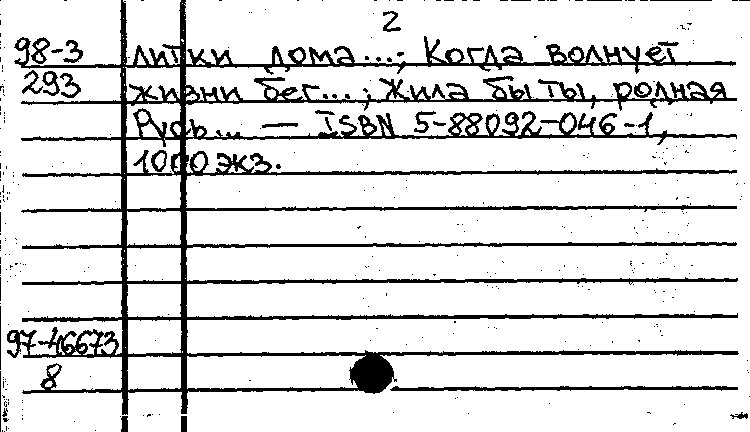 2
98-3 литки дома...; Когда волнует
293 жизни бег...; Жила бы ты, родная
Русь... — ISBN 5-88092-046-1,
1000 экз.
97-46673
8